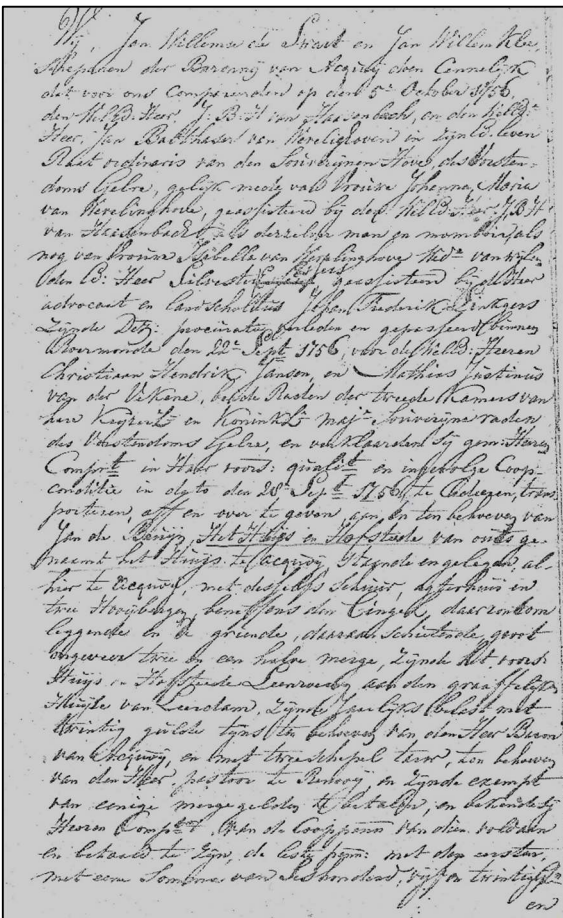 Wij, Jan Willemse de Swart en Jan Willem Klee,
Schepenen der Baronnij van Acquoij doen Cennelijk
dat voor ons Compareerden op den 5e October 1756,
den Wel Ed: Heer, J: B: H van Haesenbach, en den Wel Ed:
Heer, Jan Balthasar van Wevelighoven in zijn Ed: leven
Raet ordinaris van den Souverijnen Hove, des Vorsten-
doms Gelre, gelijk mede van Vrouwe Johanna, Maria
van Wevelinghove, geassisteerd bij den Wel Ed: Heer J B H
van Haesenbach als derzelver man en momboir, als
nog van Vrouwe Isabelle van Wevelinghove Wede van wijlen
den Ed: Heer Silvester geassisteerd bij de Heer
advocaet en landscholtus Johan Frederik
Zijnde Detz: procuratie verleden en gepasseerd binnen
Roermonde den 22e Sept 1756, voor de Wel Ed: Heeren
Christiaan Hendrik Jansen, en Mathias Justinus
van der Vekene, beijde Raden der treede Kamers van
hare Keijzerl: en Koninkl: maj: Souverijne raden
des Vorstendoms Gelre, en verklaarden Sij gem: Heeren
Compt in Haer voors: qualit: en ingevolge Coop-
conditie in dato den 28e Sept 1756, te trans
porteren, aff en over te geven, aan, en ten behoeven van
Jan de Bruijn, Het Huijs en Hofstede van ouds ge-
naemt het Huijs te Acquoij, Staende en gelegen, al-
hier te Acquoij, met desselfs Schuur, agterhuis en
twee Hooijbergen, beneffens den Cingel, daar rondom
leggende en de griende, daaraan Schietende, groot
ongeveer twee en een halve merge, Zijnde het voors:
Huijs en Hoffstede Leenroerig aan den graaffelijke
Huijse van Leerdam, Zijnde Jaarlijks belast met
twintig gulde tyns ten behoeven van den Heer Baron
van Acquoij, en met twee schepel terw, ten behoeven
van den Heer pastoor te Renoij, en Zijnde exempt
van eenige mergegelden te betalen, en bekende Sij
Heeren Compten van de Cooppenn: van dien voldaen
en betaald te Zijn, de leste penn: met den eersten,
met eene Somma van Seshonderd, vijf en twintig
en